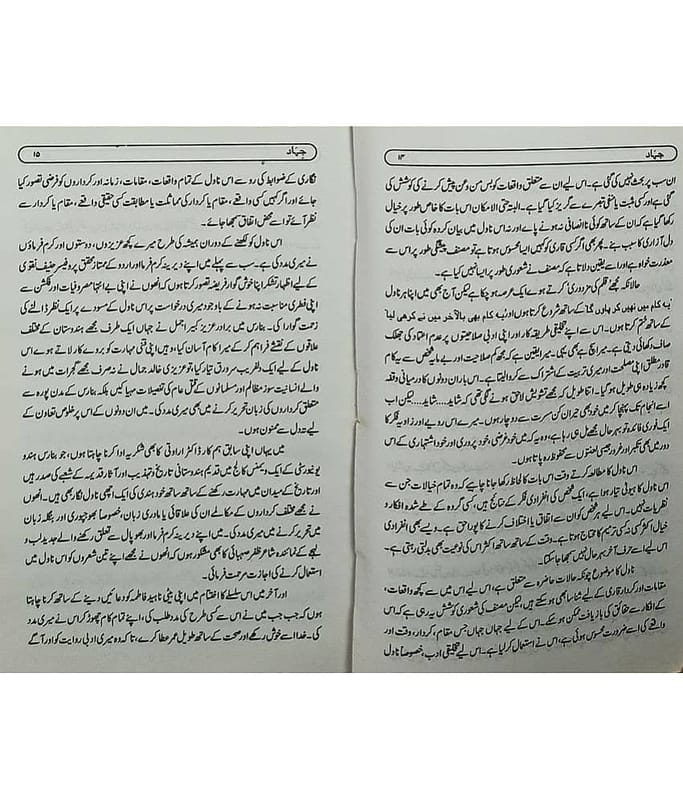 جہاد ۱۴
ان سب پر بحث نہیں کی گئی ہے۔ اس لیے ان سے متعلق واقعات کو بس من وعن پیش کرنے کی کوشش کی
گئی ہے اور کسی مثبت یا منفی تبصرے سے گریز کیا گیا ہے۔ البتہ حتی الامکان اس بات کا خاص طور پر خیال
رکھا گیا ہے کہ ان کے ساتھ کوئی ناانصافی نہ ہونے پائے اور نہ اس ناول میں بیان کردہ کوئی بات ان کی
دل آزاری کا سبب بنے۔ پھر بھی اگر کسی قاری کو کہیں ایسا محسوس ہوتا ہے تو مصنف پیشگی طور پر اس سے
معذرت خواہ ہے اور اسے یقین دلاتا ہے کہ مصنف نے شعوری طور پر ایسا نہیں کیا ہے۔
حالانکہ مجھے قلم کی مزدوری کرتے ہوئے ایک عرصہ ہو چکا ہے لیکن آج بھی میں اپنا ہر ناول
یہ کام میں نہیں کر پاؤں گا کے ساتھ شروع کرتا ہوں اور یہ کام بھی بالآخر میں نے کر ہی لیا
کے ساتھ ختم کرتا ہوں۔ اس سے اپنے تخلیقی طریقہ کار اور اپنی ادبی صلاحیتوں پر عدم اعتماد کی جھلک
صاف دکھائی دیتی ہے۔ میرا سچ ہے بھی یہی۔ میرا یقین ہے کہ مجھ کم صلاحیت اور بے مایہ شخص سے یہ کام
قادر مطلق اپنی مصلحت اور میری تربیت کے اشتراک سے کروا لیتا ہے۔ اس بار ان دونوں کا درمیانی وقفہ
کچھ زیادہ ہی طویل ہو گیا۔ اتنا طویل کہ مجھے تشویش لاحق ہونے لگی تھی کہ شاید.... شاید.... لیکن اب
اسے انجام تک پہنچا کر میں خود بھی حیران کن مسرت سے دو چار ہوں۔ میرے اس رویے اور زاویہ فکر کا
ایک فوری فائدہ تو بہرحال مجھے مل ہی رہا ہے، وہ یہ کہ میں خود غرضی، خود پروری اور خود اشتہاری کے اس
دور میں بھی تکبر اور غرور جیسی لعنتوں سے محفوظ رہ پاتا ہوں۔
اس ناول کا مطالعہ کرتے وقت اس بات کا لحاظ رکھا جانا چاہیے کہ وہ تمام خیالات جن سے
اس ناول کا ہیولیٰ تیار ہوا ہے، ایک شخص کی انفرادی فکر کے نتائج ہیں، کسی گروہ کے طے شدہ افکار و
نظریات نہیں ہیں۔ اس لیے ہر شخص کو ان سے اتفاق یا اختلاف کرنے کا پورا حق ہے۔ ویسے بھی انفرادی
خیال اکثر کسی نہ کسی ترمیم کا محتاج ہوتا ہے۔ وقت کے ساتھ ساتھ اکثر اس کی نوعیت بھی بدلتی رہتی ہے۔
اس لیے اسے حرف آخر بہرحال نہیں سمجھا جا سکتا۔
ناول کا موضوع چونکہ حالات حاضرہ سے متعلق ہے، اس لیے اس میں سے کچھ واقعات،
مقامات اور کردار قاری کے لیے شناسا بھی ہو سکتے ہیں، لیکن مصنف کی شعوری کوشش یہ رہی ہے کہ اس
کے افکار سے حقائق کی بازیافت ممکن ہو سکے۔ اس کے لیے جہاں جہاں جس مقام، کردار، وقت اور
واقعے کی اسے ضرورت محسوس ہوئی ہے، اس نے استعمال کر لیا ہے۔ اس لیے تخلیقی ادب، خصوصاً ناول
جہاد ۱۵
نگاری کے ضوابط کی رو سے اس ناول کے تمام واقعات، مقامات، زمانہ اور کرداروں کو فرضی تصور کیا
جائے اور اگر کہیں کسی واقعے، مقام یا کردار کی مماثلت یا مطابقت کسی حقیقی واقعے، مقام یا کردار سے
نظر آئے تو اسے محض اتفاق سمجھا جائے۔
اس ناول کو لکھنے کے دوران ہمیشہ کی طرح میرے کچھ عزیزوں، دوستوں اور کرم فرماؤں
نے میری مدد کی ہے۔ سب سے پہلے میں اپنے دیرینہ کرم فرما اور اردو کے ممتاز محقق پروفیسر حنیف نقوی
کے لیے اظہار تشکر اپنا خوش گوار فریضہ تصور کرتا ہوں کہ انھوں نے اپنی بے انتہا مصروفیات اور فکشن سے
اپنی فطری مناسبت نہ ہونے کے باوجود میری درخواست پر اس ناول کے مسودے پر ایک نظر ڈالنے کی
زحمت گوارا کی۔ بنارس میں برادر عزیز کبیر اجمل نے جہاں ایک طرف مجھے ہندستان کے مختلف
علاقوں کے نقشے فراہم کر کے میرا کام آسان کیا، وہیں اپنی فنی مہارت کو بروے کار لاتے ہوے اس
ناول کے لیے ایک دلفریب سرورق تیار کیا، تو عزیزی کی خالد جمال نے نہ صرف مجھے گجرات میں ہونے
والے انسانیت سوز مظالم اور مسلمانوں کے قتل عام کی تفصیلات مہیا کیں بلکہ بنارس کے مدن پورہ سے
متعلق کرداروں کی زبان تحریر کرنے میں بھی میری مدد کی۔ میں ان دونوں کے اس پرخلوص تعاون کے
لیے تہ دل سے ممنون ہوں۔
میں یہاں اپنی سابق ہم کار ڈاکٹر ارادتی کا بھی شکریہ ادا کرنا چاہتا ہوں، جو بنارس ہندو
یونیورسٹی کے ایک ویمنس کالج میں قدیم ہندوستانی تاریخ و تہذیب اور آثار قدیمہ کے شعبے کی صدر ہیں
اور تاریخ کے میدان میں مہارت رکھنے کے ساتھ ساتھ خود ہندی کی ایک اچھی ناول نگار بھی ہیں۔ انھوں
نے مجھے مختلف کرداروں کے مکالمے ان کی علاقائی یا مادری زبان، خصوصاً بھوجپوری اور بنگلہ زبان
میں تحریر کرنے میں میری مدد کی۔ میں اپنے دیرینہ کرم فرما اور بھوپال سے تعلق رکھنے والے جدید لب و
لہجے کے نمائندہ شاعر ظفر صہبائی کا بھی مشکور ہوں کہ انھوں نے مجھے اپنے تین شعروں کو اس ناول میں
استعمال کرنے کی اجازت مرحمت فرمائی۔
اور آخر میں اس سلسلے کا اختتام میں اپنی بیٹی ناہید فاطمہ کو دعائیں دینے کے ساتھ کرنا چاہتا
ہوں کہ جب جب میں نے اس سے کسی طرح کی مدد طلب کی، اپنے تمام کام چھوڑ کر اس نے میری مدد
کی۔ خدا اسے خوش رکھے اور صحت کے ساتھ طویل عمر عطا کرے، تاکہ وہ میری ادبی روایت کو اور آگے